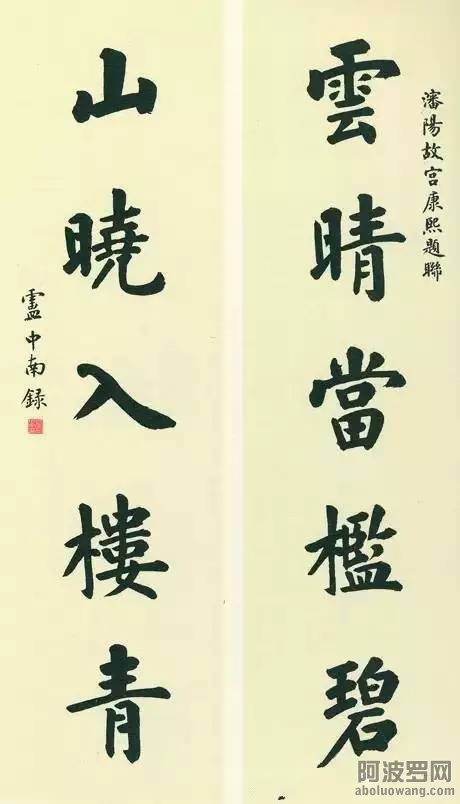 瀋陽故宫康熙題聯
雲晴當檻碧
山曉入樓青
盧中南録
阿波罗网
aboluowang.com